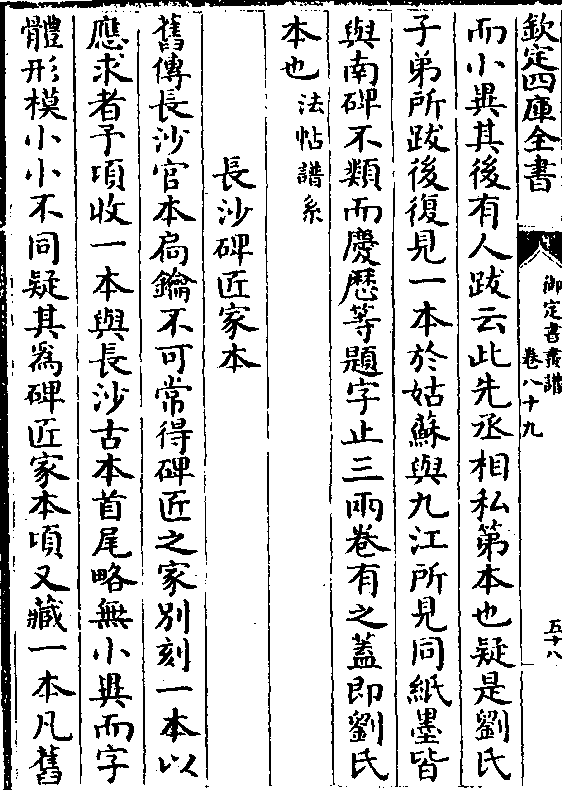 欽定四庫全書
御定書畫譜
卷八十九
五十八
而小異其後有人跋云此先丞相私第本也疑是劉氏
子弟所跋後復見一本於姑蘇與九江所見同紙墨皆
與南碑不類而慶厯等題字止三兩卷有之蓋即劉氏
本也法帖譜系
長沙碑匠家本
舊傳長沙官本扃鑰不可常得碑匠之家別刻一本以
應求者予項收一本與長沙古本首尾略無小異而字
體形模小小不同疑其為碑匠家本項又藏一本凡舊